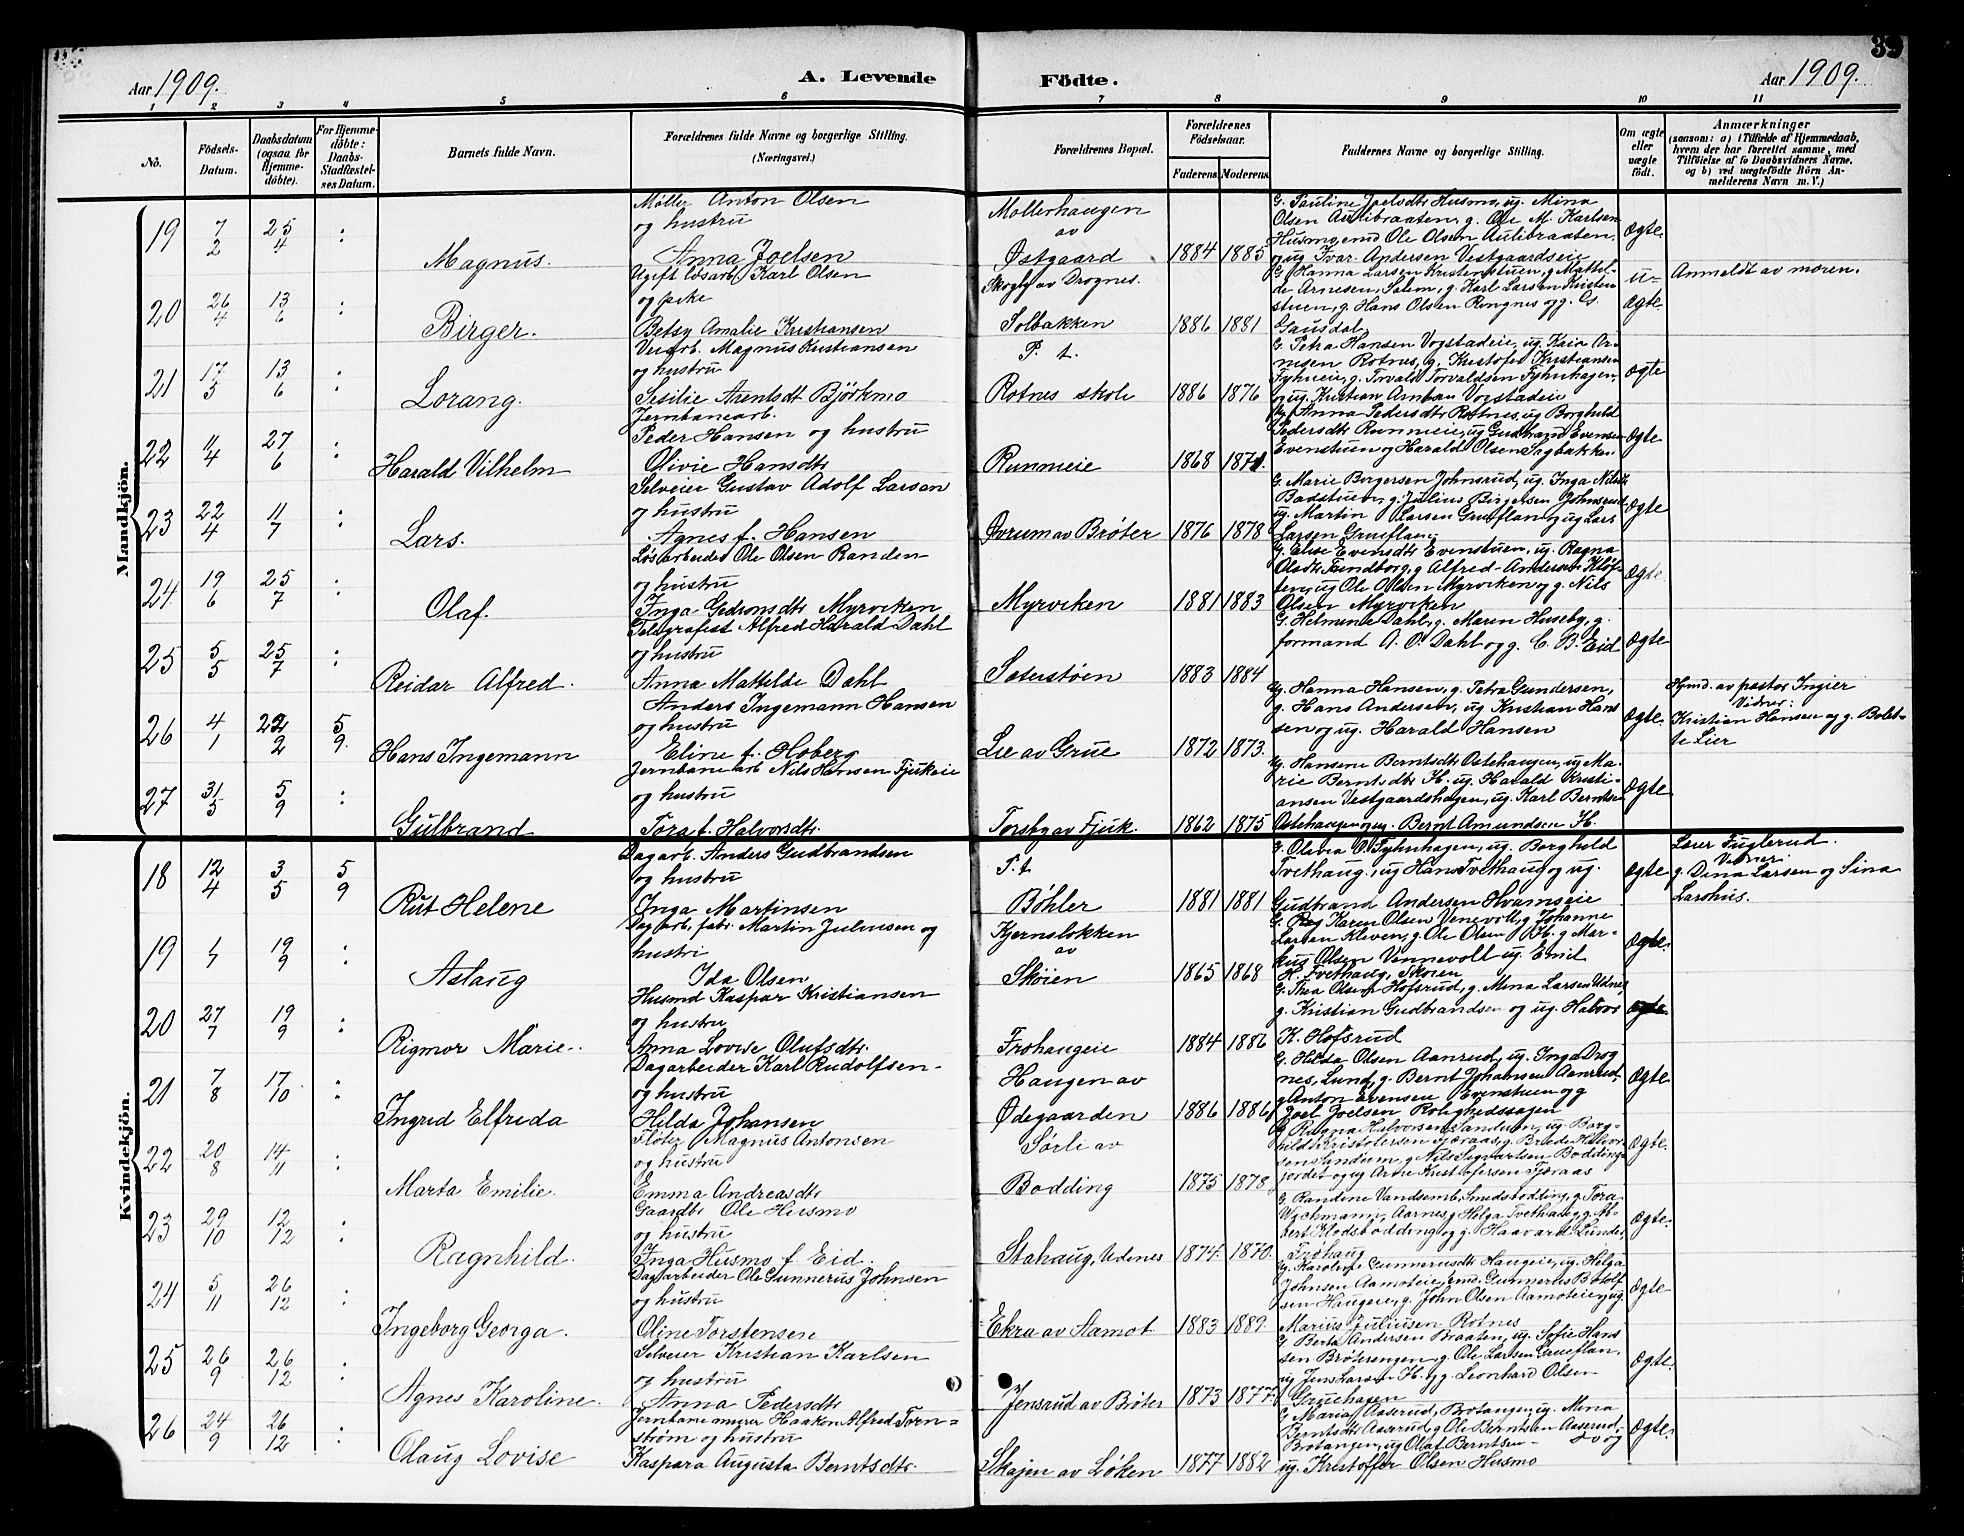 39
Aar 1909.
A. Levende Födte.
Aar 1909.
1 2 3 4 5 6 7 8 9 10 11
No.
Födsels-Datum.
Daabsdatum (ogsaa for Hjemme-döbte).
For Hjemme-döbte: Daabs-Stadfæstel-ses Datum.
Barnets fulde Navn.
Forældrenes fulde Navne og borgerlige Stilling.
(Næringsvei.)
Forældrenes Bopæl.
Forældrenes Födselsaar.
Faderens. Moderens.
Faddernes Navne og borgerlige Stilling.
Om ægte eller uægte födt.
Anmærkninger
(saasom: a) i Tilfælde af Hjemmedaab, hvem der har forrettet samme, med Tilföielse af to Daabsvidners Navne, og b) ved uægtefödte Börn An-melderens Navn m. V.)
Mandkjön.
19 7/2 25/4 : Magnus.
Møller Anton Olsen
og hustru
Anna Joelsen
Møllerhaugen
av
Østgaard 1884 1885
G. Pauline Joelsdtr Husmo, ug. Mina
Olsen Aulibraaten, g. Ole M. Karlsen
Husmo, emd Ole Olsen Aulibraaten,
og ug. Ivar Andersen Vestgaardseie
Ægte.
20 26/4 13/6 : Birger.
Ugift løsarb. Karl Olsen
og pike
Betsy Amalie Kristiansen
Skogly av Drognes.
Solbakken 1886 1881
G. Hanna Larsen Kristenstuen, g. Mathil-
de Arnesen, Solem, g. Karl Larsen Kristen
stuen, g. Hans Olsen Ringnes og g. Cs.
Gausdal,
u-
ægte.
Anmeldt av moren.
21 17/5 13/6 : Lorang.
Veiarb. Magnus Kristiansen
og hustru
Sesilie Arentsdt Bjørkmo
P. t.
Rotnes skole 1886 1876
G. Petra Hansen Vogstadeie, ug. Kaia Ar-
nesen Rotnes, g. Kristofer Kristiansen
Fyhneie, g. Torvald Torvaldsen Fyhnhagen,
og ug. Kristian Vogstadeie
Ægte
22 11/4 27/6 : Harald Vilhelm
Jernbanearb.
Peder Hansen og hustru
Olivie Hansdtr
Runmeie 1868 1871.
Ug. Anna Pedersdtr Rotnes, ug Borghild
Pedersdtr Runmeie, ug Gudbrand Evensen
Evenstuen og Harald Olsen Sagbakken
Ægte
23 22/4 11/7 : Lars.
Selveier Gustav Adolf Larsen
og hustru
Agnes f. Hansen
Øvrum av Brøter 1876 1878
G. Marie Borgersen Johnsrud, ug. Inga Nilsdtr
Badstuen, g. Julius Birgersen Johnsrud,
ug. Martin Larsen Grueflan, og ug Lars
Larsen Grueflan.
Ægte
24. 19/6 25/7 : Olaf.
Løsarbeider Ole Olsen Randen
og hustru
Inga Gedronsdtr Myrviken
Myrviken 1881 1883
G. Else Evensdtr Evenstuen, ug. Ragna
Olsdtr Sundborg, g Alfred Andersen Kløf-
ten, ug Ole Olsen Myrviken og g. Nils
Olsen Myrviken
Ægte
25 5/5 25/7 : Reidar Alfred.
Telegrafist Alfred Harald Dahl
og hustru
Anna Mathilde Dahl
Seterstøen 1883 1884
G. Helmina Dahl, g. Maren Huseby, g.
formand A. O. Dahl og g. C. B. Eid
Ægte
26 4/1 22/2 5/9. Hans Ingemann
Anders Ingemann Hansen
og hustru
Eline f. Hoberg
Lie av Grue 1872 1873.
Ug. Hanna Hansen, g. Petra Gundersen,
g. Hans Andersen, ug Kristian Han
sen og ug. Harald Hansen
Ægte.
Hjmd. av pastor Ingier
Vidner:
Kristian Hansen og g. Bolet-
te Lier
27 31/5 5/9 : Gulbrand
Jernbanearb Nils Hansen Fjukeie
og hustru
Tora f. Halvorsdtr.
Torsby av Fjuk. 1862 1875
Ug. Hansene Berntsdtr Østehaugen, ug Ma-
rie Berntsdtr H. ug. Harald Kristi-
ansen Vestgaardshagen, ug. Karl Berntsen
Østehaugen og ug. Bernt Amundsen H.
Ægte
Kvindekjön.
18 12/4 3/5 5/9 Rut Helene
Dagarb. Anders Gudbrandsen
og hustru
Inga Martinsen
P. t
Bøhler 1881 1881
G. Olivia O. Fyhnhagen, ug. Borghild
Tvethaug, ug Hans Tvethaug og ug.
Gudbrand Andersen Hvamseie
Ægte
Lærer Fuglerud.
Vidner:
g. Dina Larsen og Sina
Larshus.
19 19/9 : Aslaug
Dagarb. fabr. Martin Juliussen og
hustru
Ida Olsen
Kjernsløkken
av
Skøien 1865 1868
G. Karen Olsen Venevoll, g. Johanne
Larsen Kleven, g. Ole Olsen H. g. Mar-
kus Olsen Vennevolt ug. Emil
K. Tvethaug, Skøien
Ægte.
20 27/7 19/9 : Rigmor Marie.
Husmd Kaspar Kristiansen
og hustru
Anna Lovise Olufsdtr.
Frohaugeie 1884 1886
G. Thea Olsen Hofsrud, g. Mina Larsen Udnes,
g. Kristian Gudbrandsen og ug. Halvor
K. Hofsrud
ægte
21 7/8 17/10 : Ingrid Elfreda
Dagarbeider Karl Rudolfsen
og hustru
Hilda Johansen
Haugen av
Ødegaarden 1886 1886
G. Hilda Olsen Aanrud, ug. Inga Drog
nes, Lund, g. Bernt Johansen Aanrud,
g Anton Evensen Evenstuen og g
Joel Joelsen Rolighedssagen
Ægte
22 20/8 14/11 : Marta Emilie.
Fløter Magnus Antonsen
og hustru
Emma Andreasdtr
Sørli av
Bodding 1875 1878
G Ragna Halvorsen Sandem, ug. Borg-
hild Kristofersen Fjæraas, g. Brede Halvor-
sen Sundum, g Nils Sigvartsen Bodding-
jordet og ug Arne Kristofersen Fjæraas
Ægte.
23 29/10 12/12 : Ragnhild.
Gaardbr Ole Husmo
og hustru
Inga Husmo f. Eid.
Stahaug, Udenes 1874. 1870.
G. Randine Vandsemb, Smedsbodding, g. Tora
Wichmann, Aarnes, g Helga Tvethaug, g. Al-
bert Klodsbodding og g. Haavard Lunder
Frohaug
Ægte.
24 5/11 26/12 : Ingeborg Georga.
Dagarbeider Ole Gunnerus Johnsen
og hustru
Oline Torstensen
Ekra av Aamot 1883 1889
Ug. Karoline Gunnerusdtr Haugeie, ug. Helga
Johnsen Aamoteie, emd. Gunnerus Botolf
sen Haugeie, g. John Olsen Aamoteie og ug
Marius Juliusen Rotnes
Ægte
25 26/9 26/12 : Agnes Karoline.
Selveier Kristian Karlsen
og hustru
Anna Pedersdtr
Jensrud av Brøter 1873 1877.
G. Berta Andersen Braaten, ug. Sofie Han
sen Brøterengen, g. Ole Larsen Grueflan,
ug Jens Larsen H. og g. Leonhard Olsen
Gruehagen
Ægte.
26 24/9 26/12 : Olaug Lovise
Jernbanemurer Haakon Alfred Torn-
strøm og hustru
Kaspara Augusta Berntsdtr.
Skajen av Løken 1877 1882
G. Maria Aaserud, Brotangen, ug. Mina
Berntsdtr Aaserud, g Ole Berntsen Aaserud,
Brotangen, ug Olaf Berntsen og
ug. Kristoffer Olsen Husmo
Ægte.